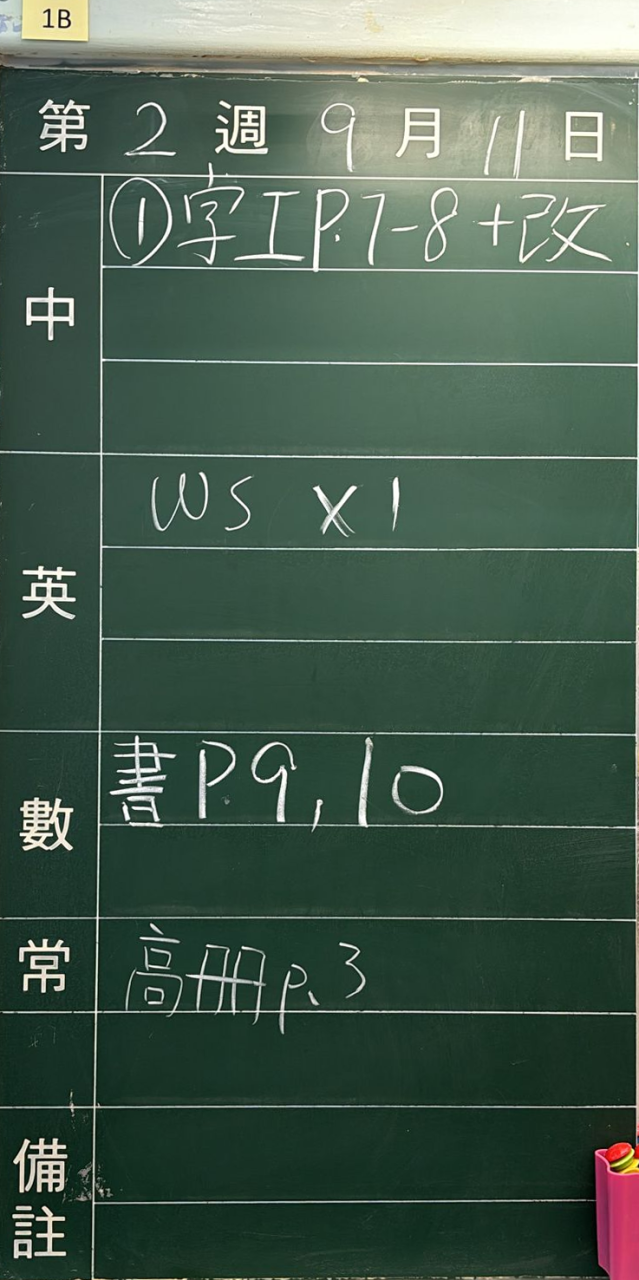 1B
第 2 週 9 月 11 日
中
①字工P.7-8+改
英
WS X1
數
書P.9,10
常
高冊p.3
備註